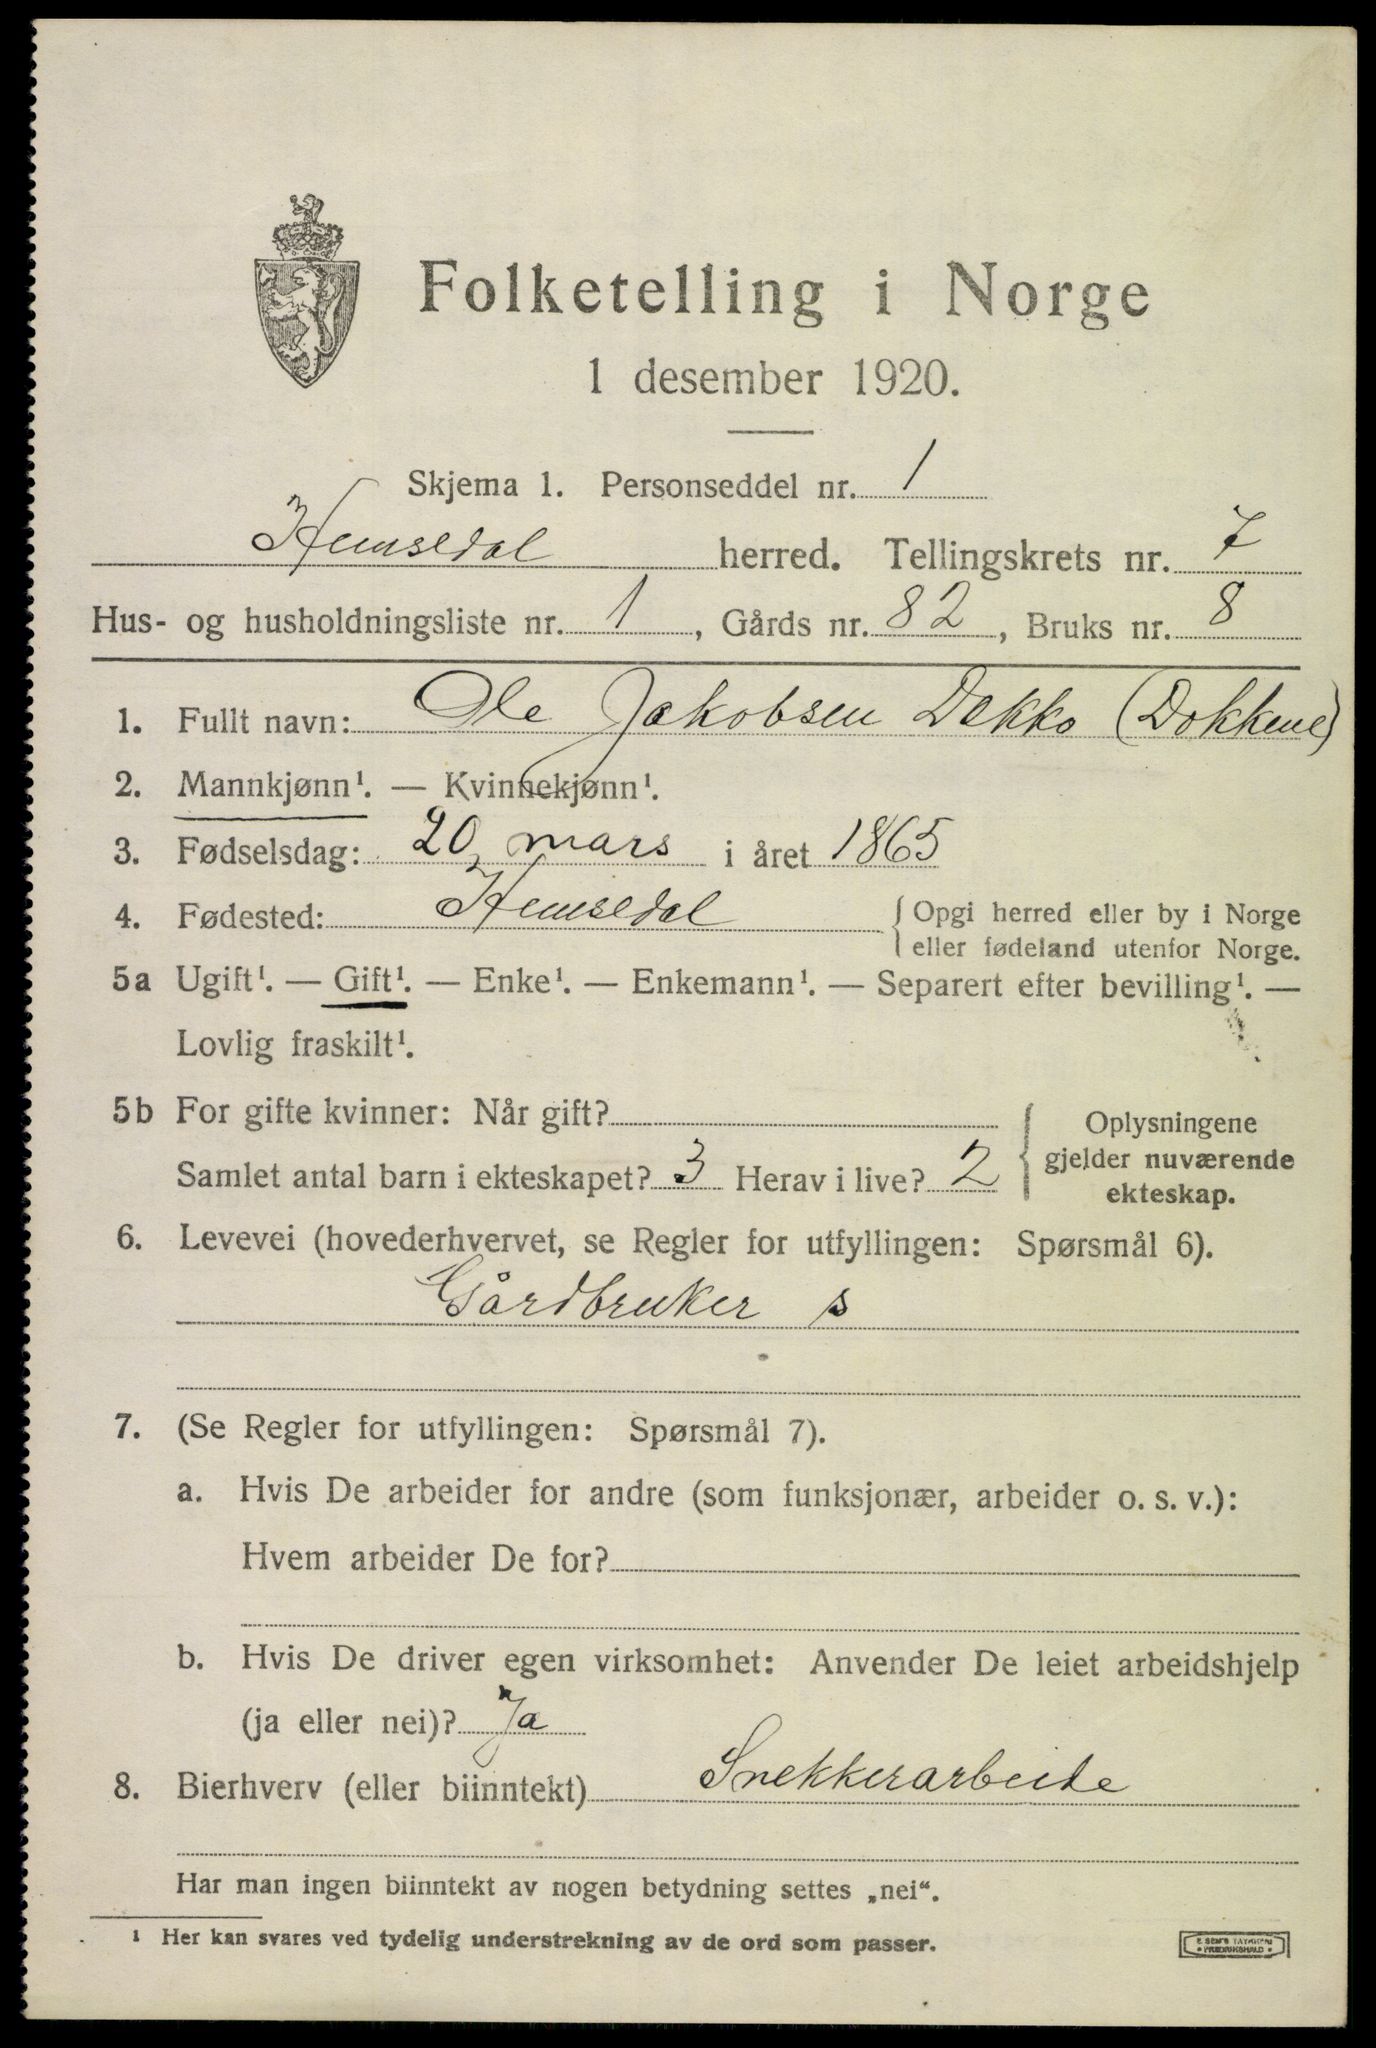 Folketelling i Norge
1 desember 1920.
Skjema 1. Personseddel nr. 1
Hemsedal herred. Tellingskrets nr. 7
Hus- og husholdningsliste nr. 1, Gårds nr. 82, Bruks nr. 8
1. Fullt navn: Ole Jakobsen Dekko (Dokkene)
2. Mannkjønn¹. — Kvinnekjønn¹.
3. Fødselsdag: 20 mars i året 1865
4. Fødested: Hemsedal { Opgi herred eller by i Norge
eller fødeland utenfor Norge.
5a Ugift¹. — Gift¹. — Enke¹. — Enkemann¹. — Separert efter bevilling¹. —
Lovlig fraskilt¹.
5b For gifte kvinner: Når gift?
Samlet antal barn i ekteskapet? 3 Herav i live? 2
{ Oplysningene
gjelder nuværende
ekteskap.
6. Levevei (hovederhvervet, se Regler for utfyllingen: Spørsmål 6).
Gårdbruker s
7. (Se Regler for utfyllingen: Spørsmål 7).
a. Hvis De arbeider for andre (som funksjonær, arbeider o. s. v.):
Hvem arbeider De for?
b. Hvis De driver egen virksomhet: Anvender De leiet arbeidshjelp
(ja eller nei)? Ja
8. Bierhverv (eller biinntekt) Snekkerarbeide
Har man ingen biinntekt av nogen betydning settes „nei“.
¹ Her kan svares ved tydelig understrekning av de ord som passer.
FREDRIKSHALD